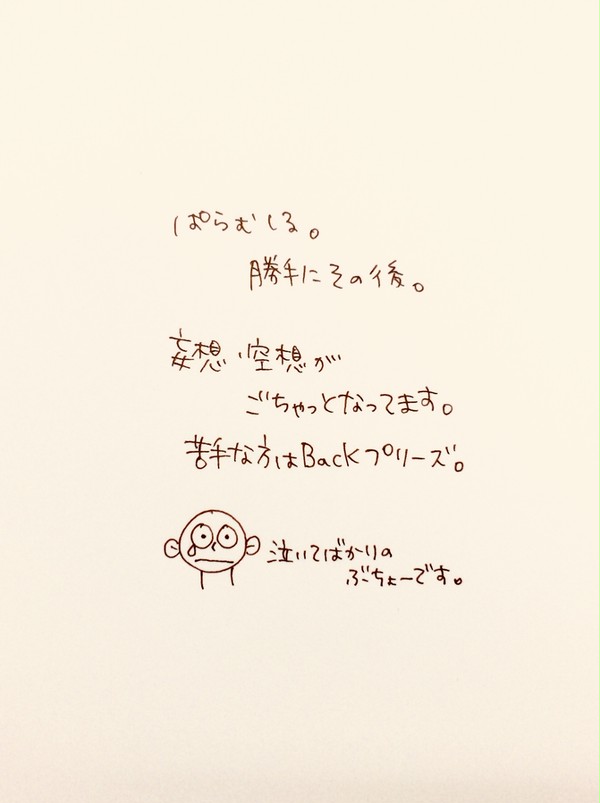 ぱらむしる。
勝手にその後。
妄想・空想が
ごちゃっとなってます。
苦手な方はBackプリーズ。
泣いてばかりの
ぶちょーです。